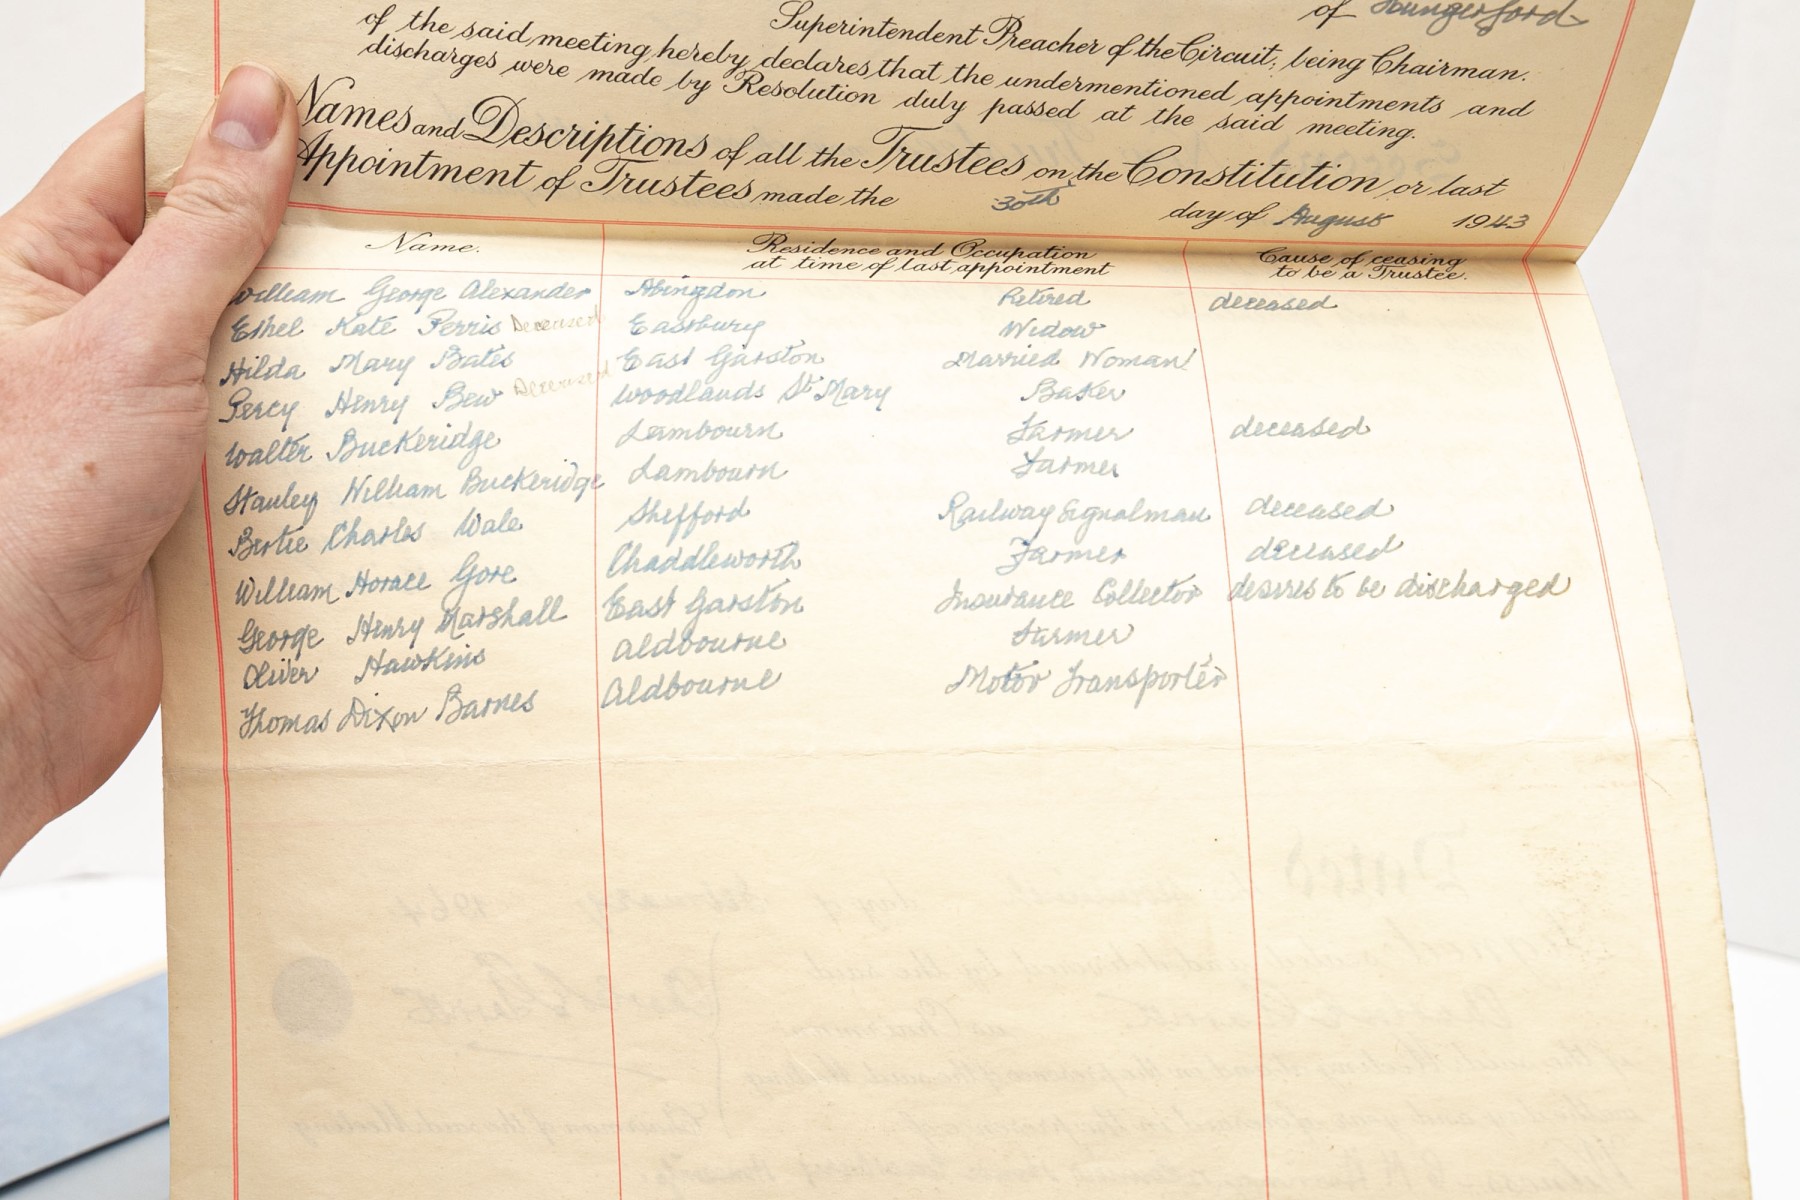 of Hungerford
Superintendent Preacher of the Circuit, being Chairman.
of the said meeting hereby declares that the undermentioned appointments and
discharges were made by Resolution duly passed at the said meeting.
Names and Descriptions of all the Trustees on the Constitution or last
Appointment of Trustees made the 30th day of August 1943
Name. Residence and Occupation at time of last appointment Cause of ceasing to be a Trustee.
William George Alexander Abingdon Retired deceased
Ethel Kate Ferris Deceased Eastbury Widow
Hilda Mary Bates East Garston Married Woman
Percy Henry Bew Deceased Woodlands St Mary Baker
Walter Buckeridge Lambourn Farmer deceased
Stanley William Buckeridge Lambourn Farmer
Bertie Charles Wale Shefford Railway Signalman deceased
William Horace Gore Chaddleworth Farmer deceased
George Henry Marshall East Garston Insurance Collector desires to be discharged
Oliver Hawkins Aldbourne Farmer
Thomas Dixon Barnes Aldbourne Motor Transporter